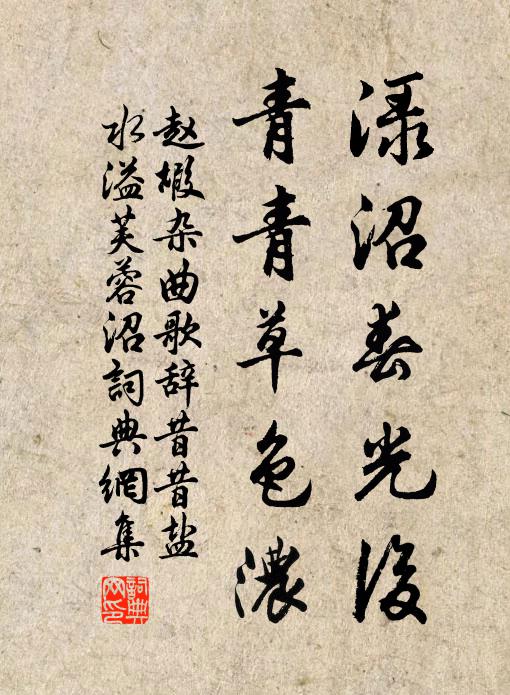 渌沼春光後
青青草色濃
赵嘏杂曲歌辞昔昔盐
水溢芙蓉沼詞典網集
詞典網印